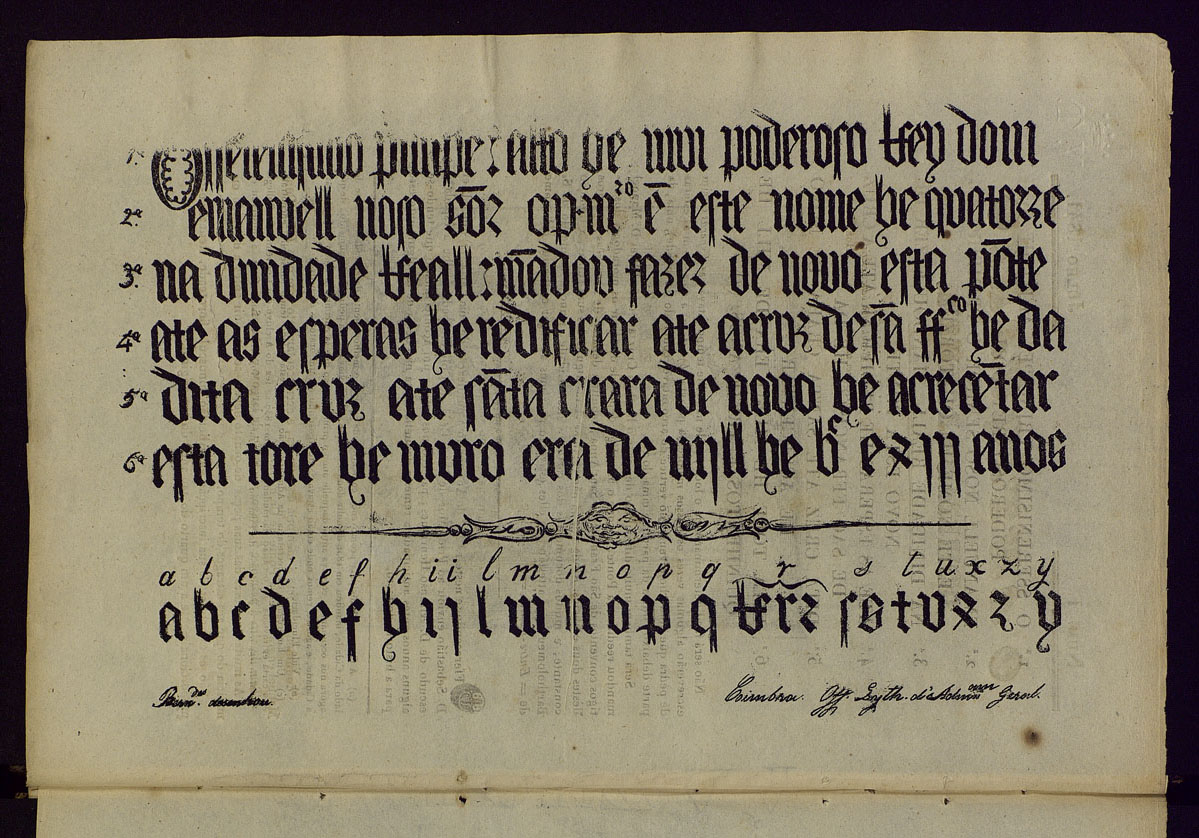 1.ª O serenisimo prinsipe : alto he mui poderoso Rey dom
2.ª emanuell noso sõr o p.rim.ro ẽ este nome he quatorze
3.ª na dinidade Reall : mãdou fazer de novo esta põte
4.ª ate as esperas he redificar ate a cruz de sã ff.co he da
5.ª dita cruz ate sãta crara de novo he acrecẽtar
6.ª esta tore he muro era de mjll he bc e xiij anos
a b c d e f h i i l m n o p q r s t u x z y
a b c d e f h i j l m n o p q R r r s s t v x z y
Bern.des desenhou.
Coimbra. Off. Lyth. da Admin.ção Geral.